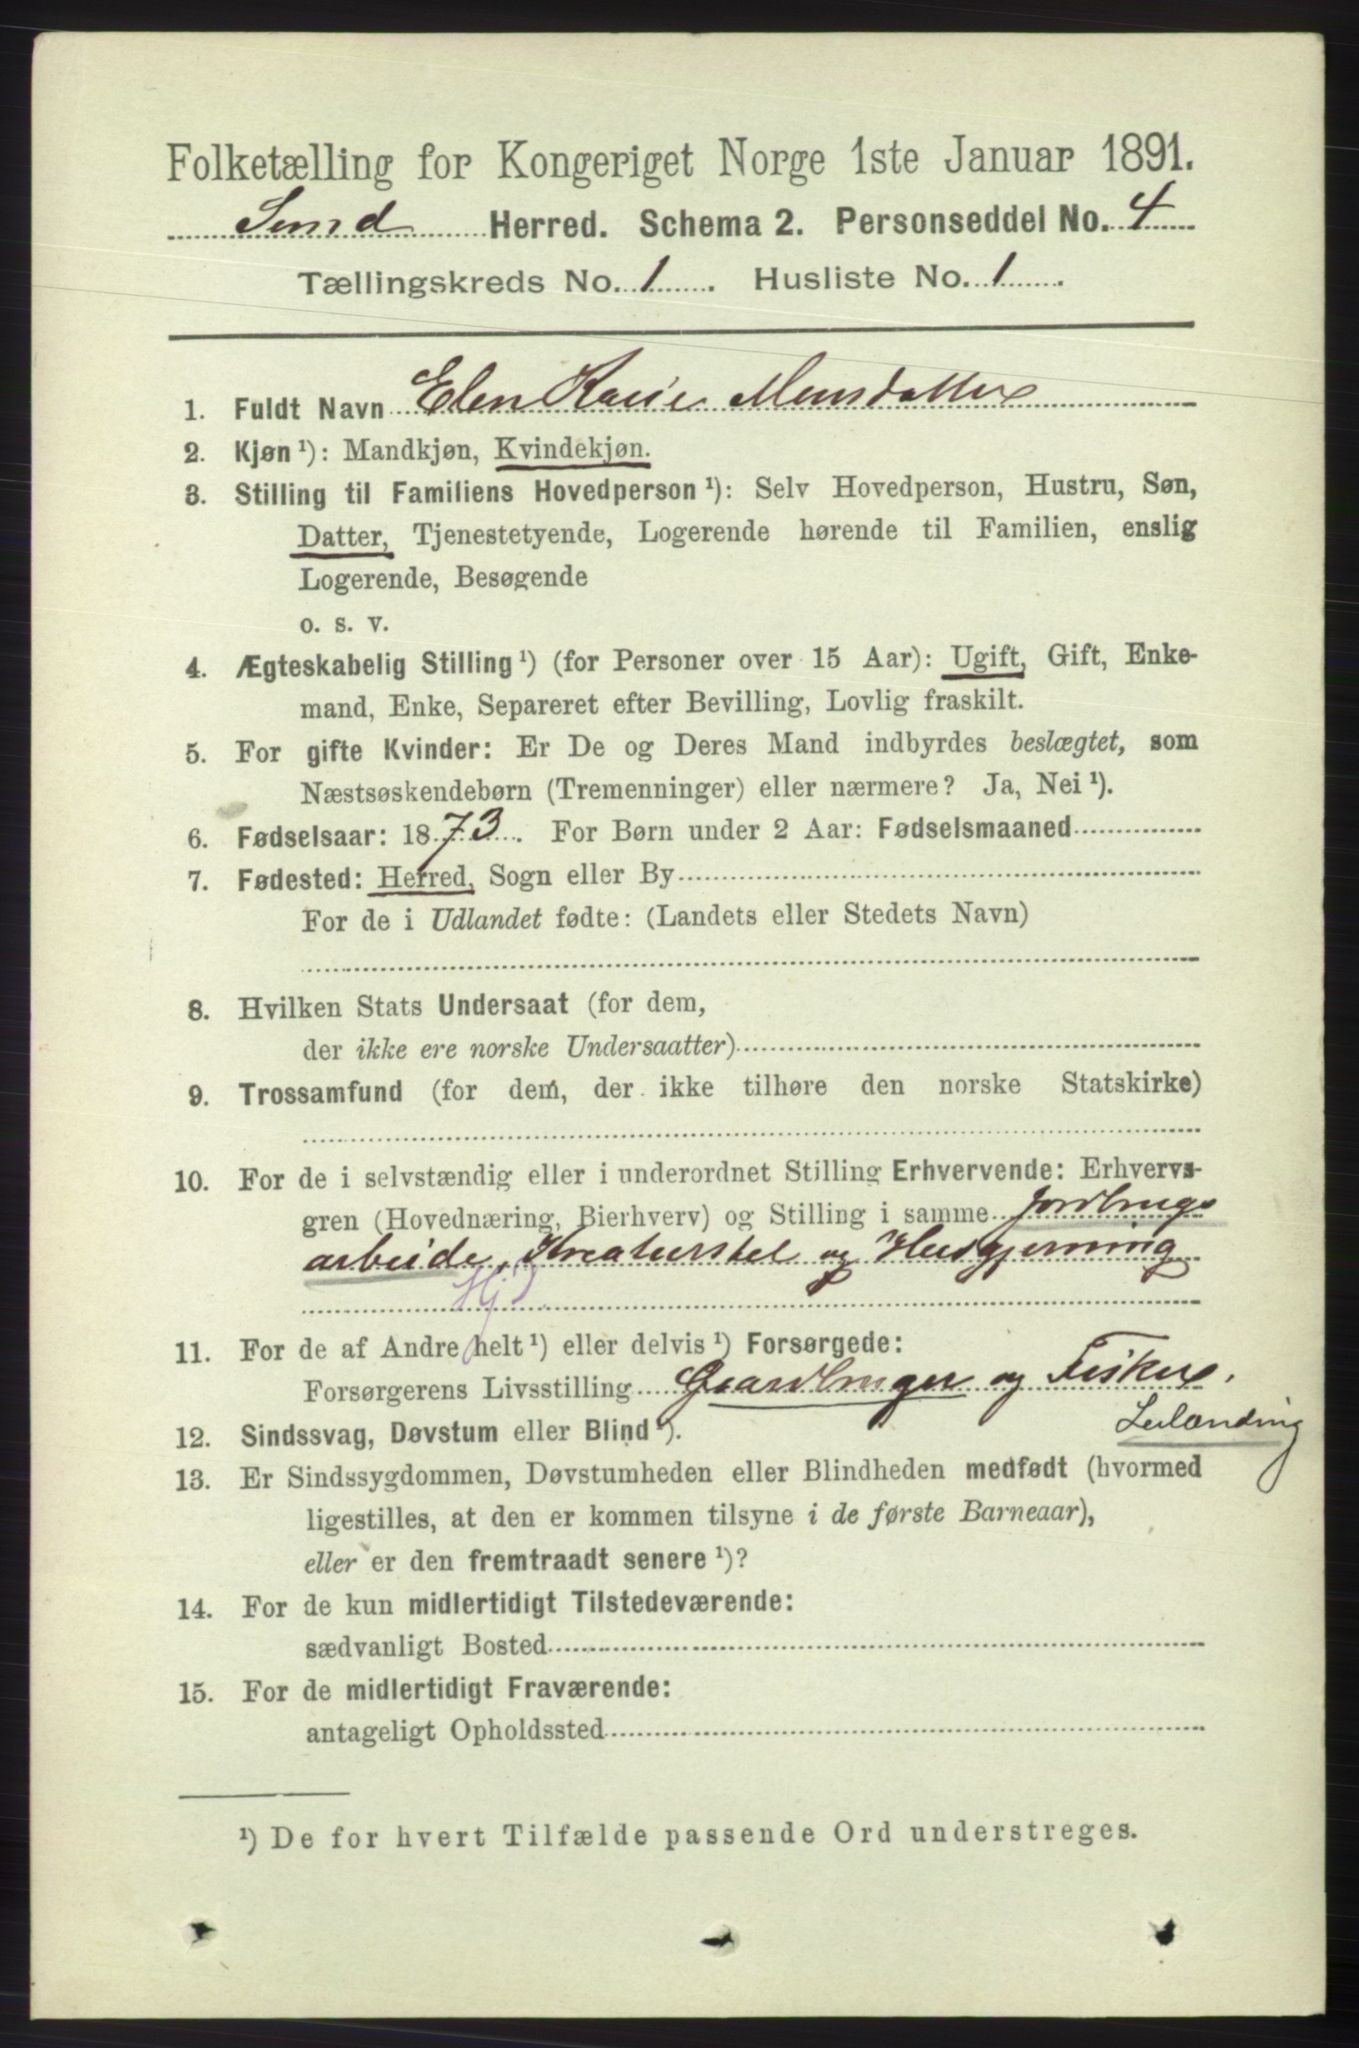 Folketælling for Kongeriget Norge 1ste Januar 1891.
Sund Herred. Schema 2. Personseddel No. 4
Tællingskreds No. 1. Husliste No. 1.
1. Fuldt Navn Elen Karie Monsdatter
2. Kjøn ¹): Mandkjøn, Kvindekjøn.
3. Stilling til Familiens Hovedperson ¹): Selv Hovedperson, Hustru, Søn,
Datter, Tjenestetyende, Logerende hørende til Familien, enslig
Logerende, Besøgende
o. s. v.
4. Ægteskabelig Stilling ¹) (for Personer over 15 Aar): Ugift, Gift, Enke-
mand, Enke, Separeret efter Bevilling, Lovlig fraskilt.
5. For gifte Kvinder: Er De og Deres Mand indbyrdes beslægtet, som
Næstsøskendebørn (Tremenninger) eller nærmere? Ja, Nei ¹).
6. Fødselsaar: 1873. For Børn under 2 Aar: Fødselsmaaned
7. Fødested: Herred, Sogn eller By
For de i Udlandet fødte: (Landets eller Stedets Navn)
8. Hvilken Stats Undersaat (for dem,
der ikke ere norske Undersaatter)
9. Trossamfund (for dem, der ikke tilhøre den norske Statskirke)
10. For de i selvstændig eller i underordnet Stilling Erhvervende: Erhvervs-
gren (Hovednæring, Bierhverv) og Stilling i samme Jordbrugs
arbeide, Kreaturstel og Husgjerning
11. For de af Andre helt ¹) eller delvis ¹) Forsørgede:
Forsørgerens Livsstilling Gaardbruger og Fisker.
Leilænding
12. Sindssvag, Døvstum eller Blind ¹).
13. Er Sindssygdommen, Døvstumheden eller Blindheden medfødt (hvormed
ligestilles, at den er kommen tilsyne i de første Barneaar),
eller er den fremtraadt senere ¹)?
14. For de kun midlertidigt Tilstedeværende:
sædvanligt Bosted
15. For de midlertidigt Fraværende:
antageligt Opholdssted
¹) De for hvert Tilfælde passende Ord understreges.